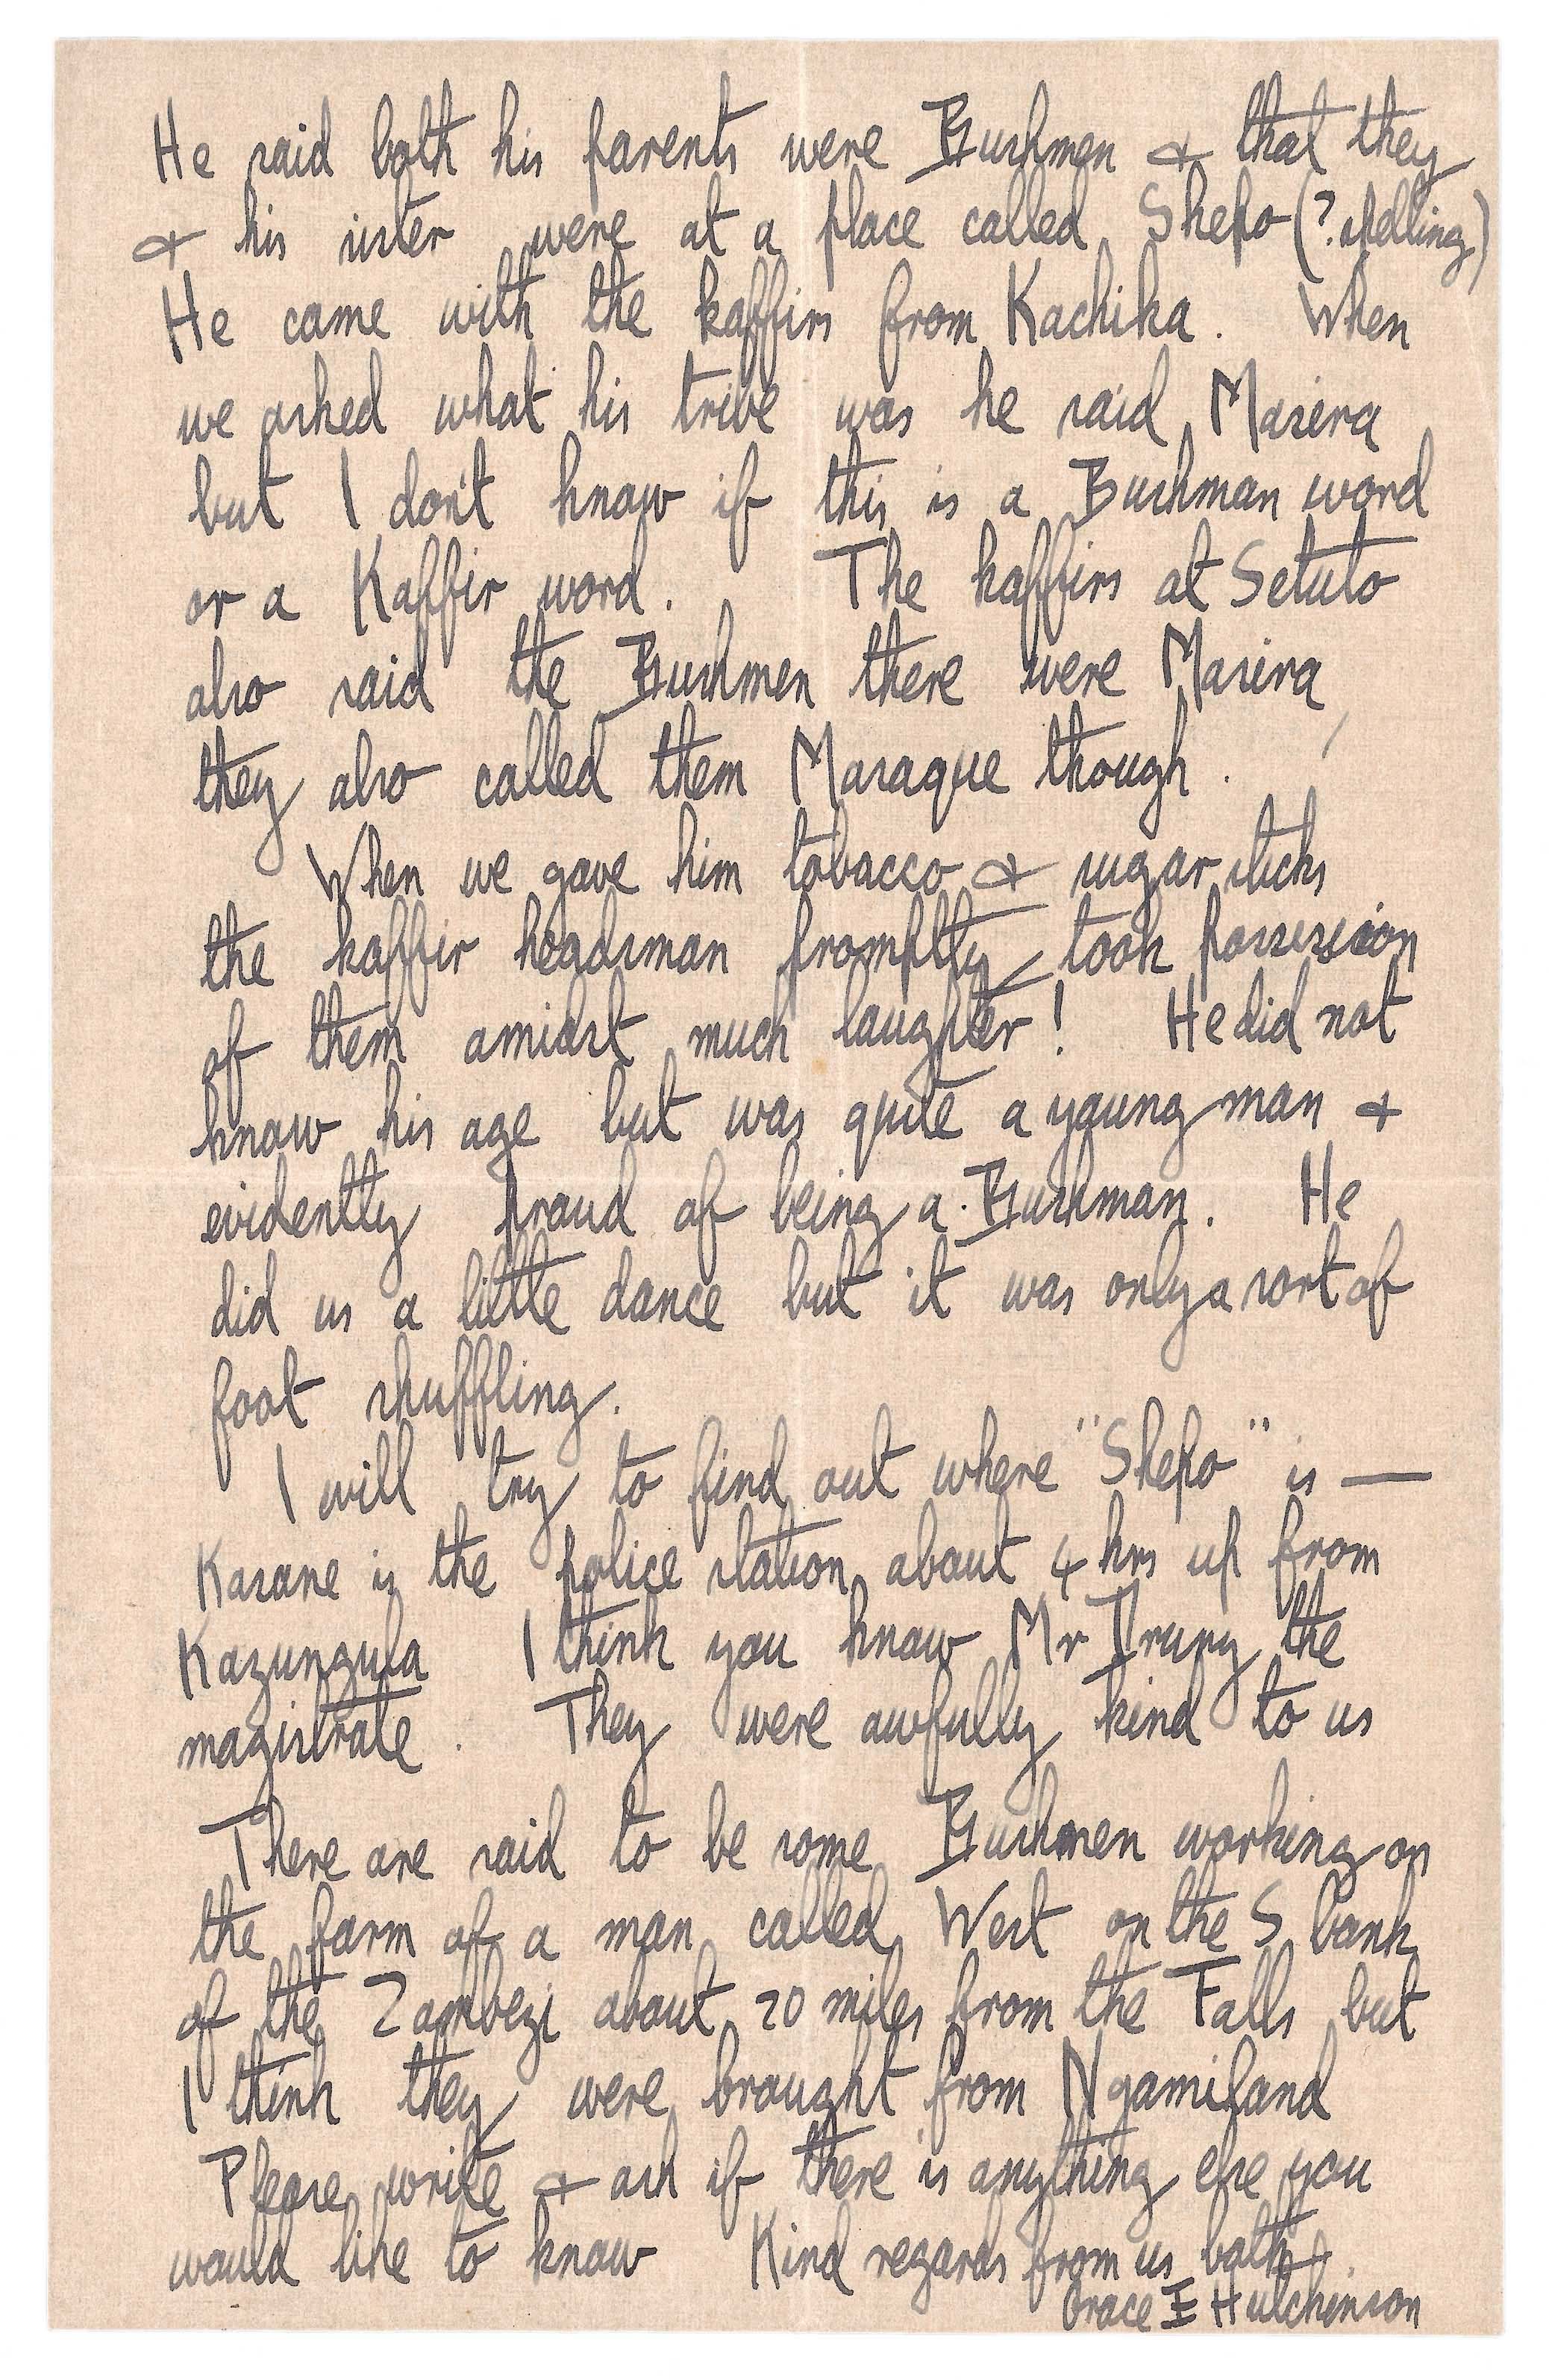 He said both his parents were Bushmen & that they
& his sister were at a place called Shepo (? spelling)
He came with the kaffirs from Kachika. When
we asked what his tribe was he said Masirwa
but I don't know if this is a Bushman word
or a Kaffir word. The kaffirs at Setuto
also said the Bushmen there were Masirwa,
they also called them Masaque though.
When we gave him tobacco & sugar sticks
the kaffir headsman promptly took possession
of them amidst much laughter! He did not
know his age but was quite a young man &
evidently proud of being a Bushman. He
did us a little dance but it was only a sort of
foot shuffling.
I will try to find out where "Shepo" is —
Kasane is the police station about 4 hrs up from
Kazungula I think you know Mr Drury the
magistrate. They were awfully kind to us
There are said to be some Bushmen working on
the farm of a man called West on the S bank
of the Zambezi about 20 miles from the Falls but
I think they were brought from Ngamiland
Please write & ask if there is anything else you
would like to know Kind regards from us both.
Grace E Hutchinson